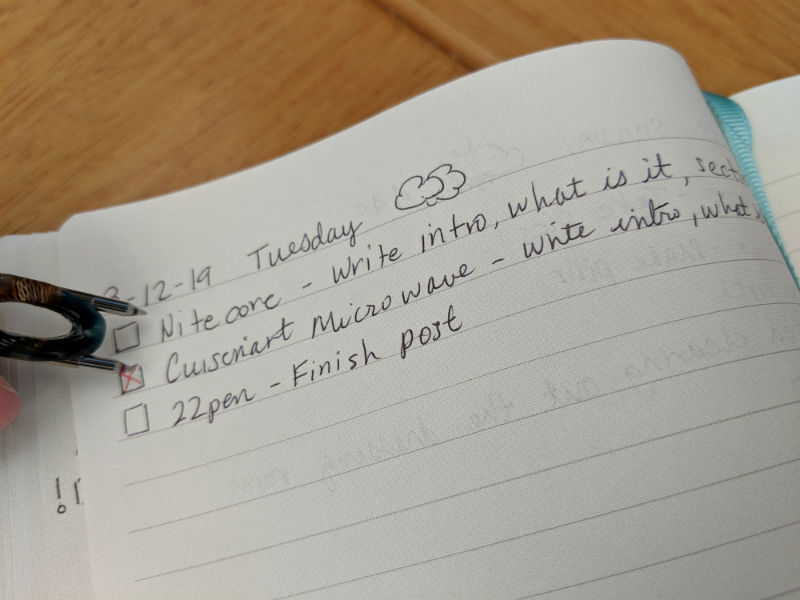 3-12-19 Tuesday
Nitecore - write intro, what is it, sect
Cuisenart Microwave - write intro, what
22pen - Finish post